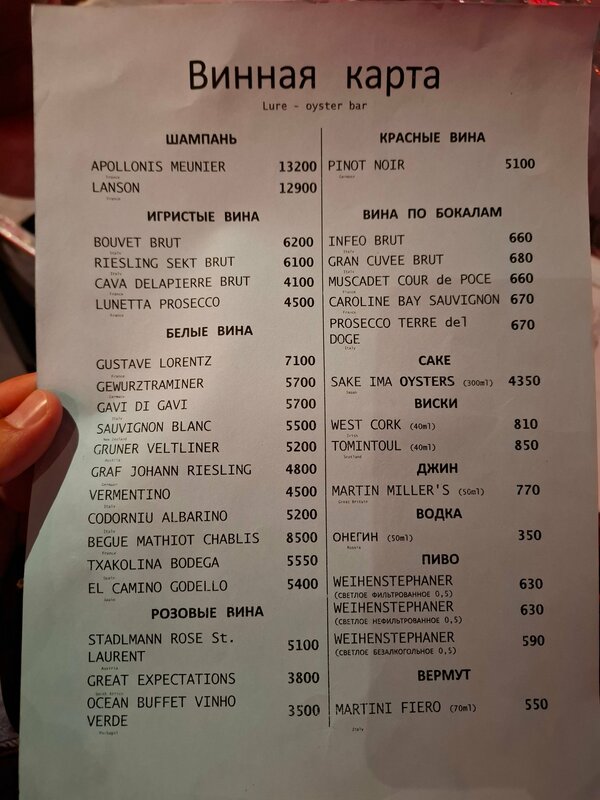 Винная карта
Lure - oyster bar
ШАМПАНЬ
APOLLONIS MEUNIER 13200
France
LANSON 12900
France
ИГРИСТЫЕ ВИНА
BOUVET BRUT 6200
Italy
RIESLING SEKT BRUT 6100
Italy
CAVA DELAPIERRE BRUT 4100
France
LUNETTA PROSECCO 4500
France
БЕЛЫЕ ВИНА
GUSTAVE LORENTZ 7100
France
GEWURZTRAMINER 5700
Germany
GAVI DI GAVI 5700
Italy
SAUVIGNON BLANC 5500
New Zealand
GRUNER VELTLINER 5200
Austria
GRAF JOHANN RIESLING 4800
Germany
VERMENTINO 4500
Italy
CODORNIU ALBARINO 5200
Italy
BEGUE MATHIOT CHABLIS 8500
France
TXAKOLINA BODEGA 5550
Spain
EL CAMINO GODELLO 5400
Spain
РОЗОВЫЕ ВИНА
STADLMANN ROSE St.
LAURENT 5100
Austria
GREAT EXPECTATIONS 3800
South Africa
OCEAN BUFFET VINHO
VERDE 3500
Portugal
КРАСНЫЕ ВИНА
PINOT NOIR 5100
Germany
ВИНА ПО БОКАЛАМ
INFEO BRUT 660
Italy
GRAN CUVEE BRUT 680
Italy
MUSCADET COUR de POCE 660
France
CAROLINE BAY SAUVIGNON 670
France
PROSECCO TERRE del
DOGE 670
Italy
САКЕ
SAKE IMA OYSTERS (300ml) 4350
Japan
ВИСКИ
WEST CORK (40ml) 810
Irish
TOMINTOUL (40ml) 850
Scotland
ДЖИН
MARTIN MILLER'S (50ml) 770
Great Britain
ВОДКА
ОНЕГИН (50ml) 350
Russia
ПИВО
WEIHENSTEPHANER 630
(СВЕТЛОЕ ФИЛЬТРОВАННОЕ 0,5)
WEIHENSTEPHANER 630
(СВЕТЛОЕ НЕФИЛЬТРОВАННОЕ 0,5)
WEIHENSTEPHANER 590
(СВЕТЛОЕ БЕЗАЛКОГОЛЬНОЕ 0,5)
ВЕРМУТ
MARTINI FIERO (70ml) 550
Italy